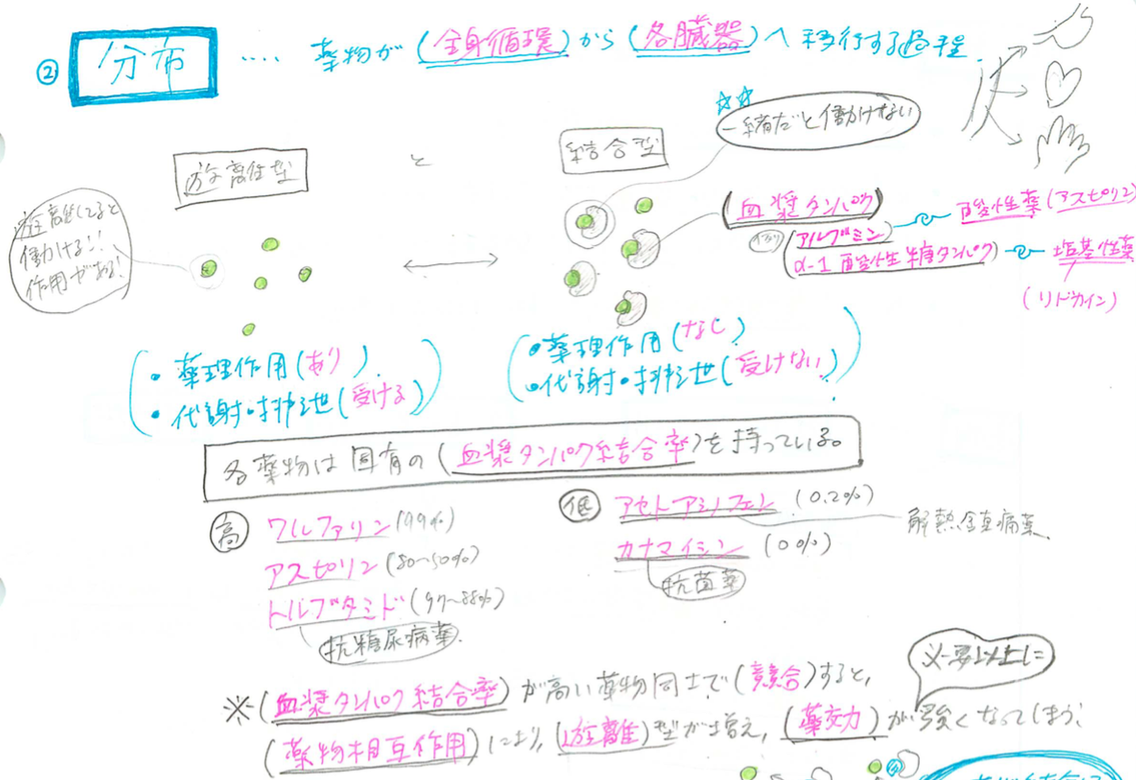 ② 分布 …. 薬物が(全身循環)から(各臓器)へ移行する過程
一緒だと働けない
遊離型 と 結合型
遊離してると
働ける!!
作用がある!
(血漿タンパク)
(アルブミン) 酸性薬(アスピリン)
α-1酸性糖タンパク) 塩基性薬
(リドカイン)
・薬理作用(あり)
・代謝・排泄(受ける)
・薬理作用(なし)
・代謝・排泄(受けない)
各薬物は固有の(血漿タンパク結合率)を持っている。
高 ワルファリン(99%)
アスピリン(80~50%)
トルブタミド(97~88%)
抗糖尿病薬
低 アセトアミノフェン(0.2%) 解熱鎮痛薬
カナマイシン(0%)
抗菌薬
必要以上に
※(血漿タンパク結合率)が高い薬物同士で(競合)すると、
(薬物相互作用)により,(遊離)型が増え,(薬効力)が強くなってしまう。